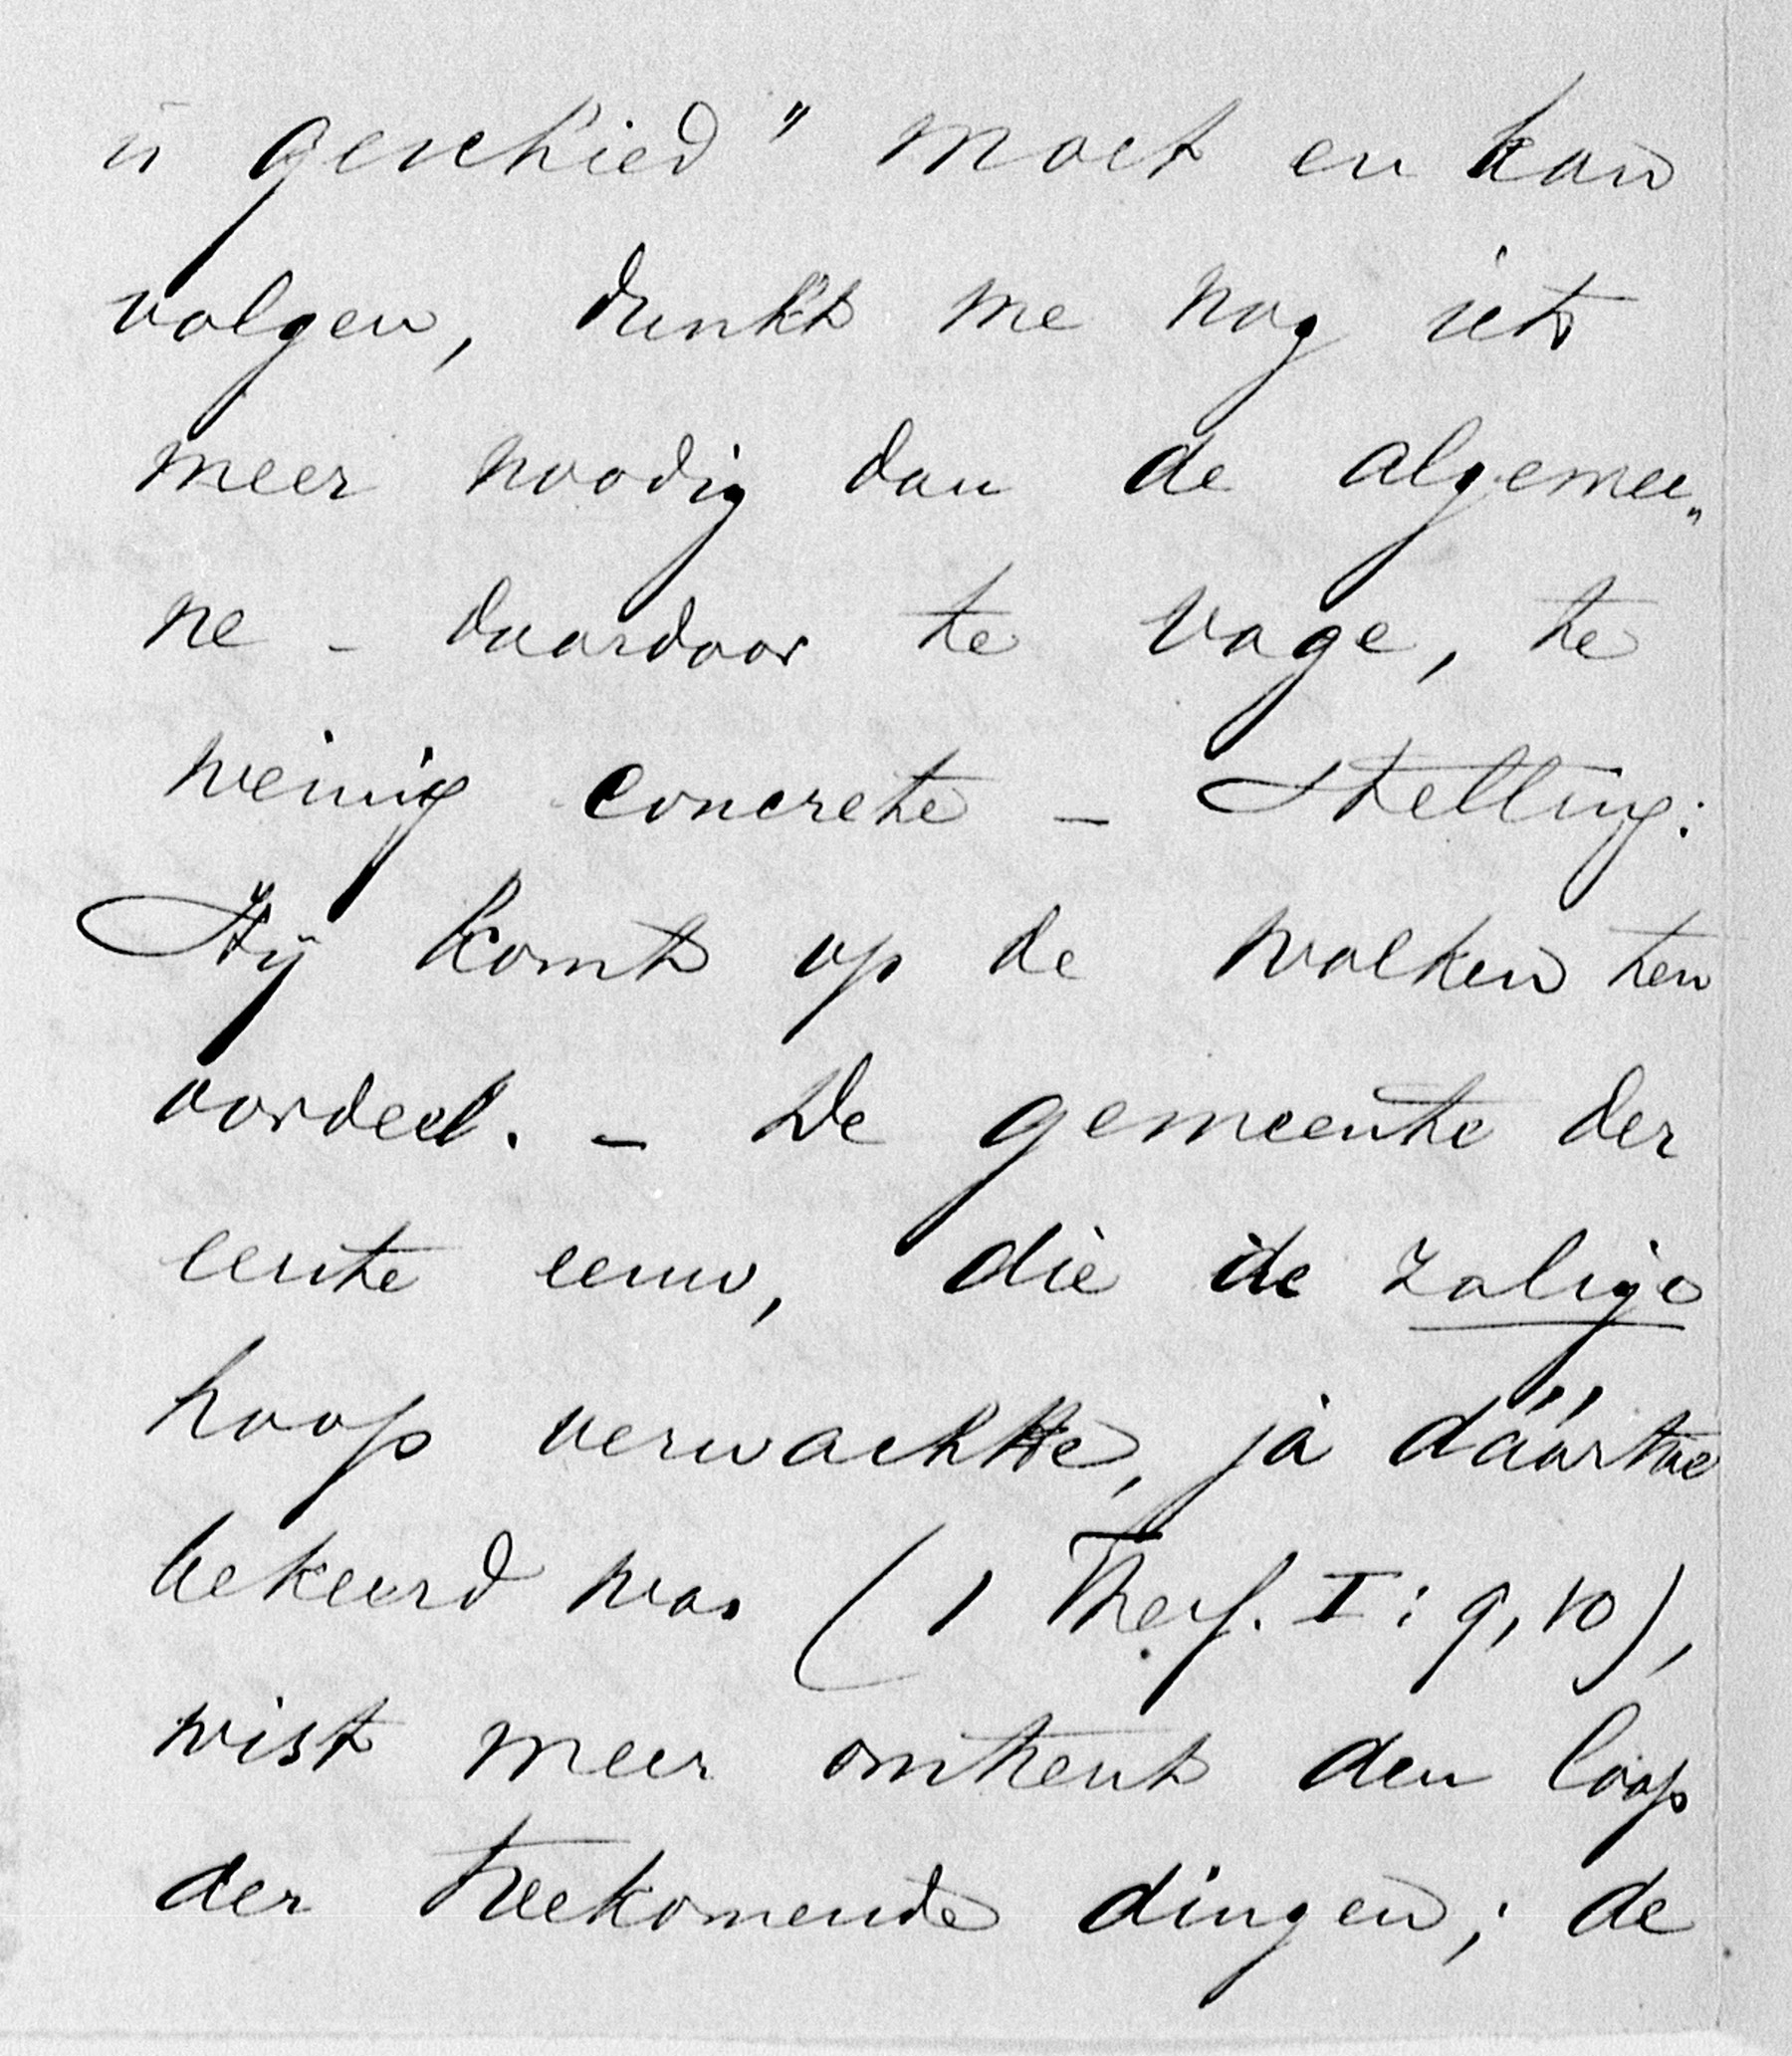 is geschied" moet en kan
volgen, dunkt me nog iets
meer noodig dan de algemee„
ne - daardoor te vage, te
weinig concrete - stelling:
Hij komt op de wolken ten
oordeel. - De gemeente der
eerste eeuw, die de zalige
hoop verwachtte, ja dáártoe
bekeerd was (1 Thess. I: 9, 10),
wist meer omtrent den loop
der toekomende dingen; de